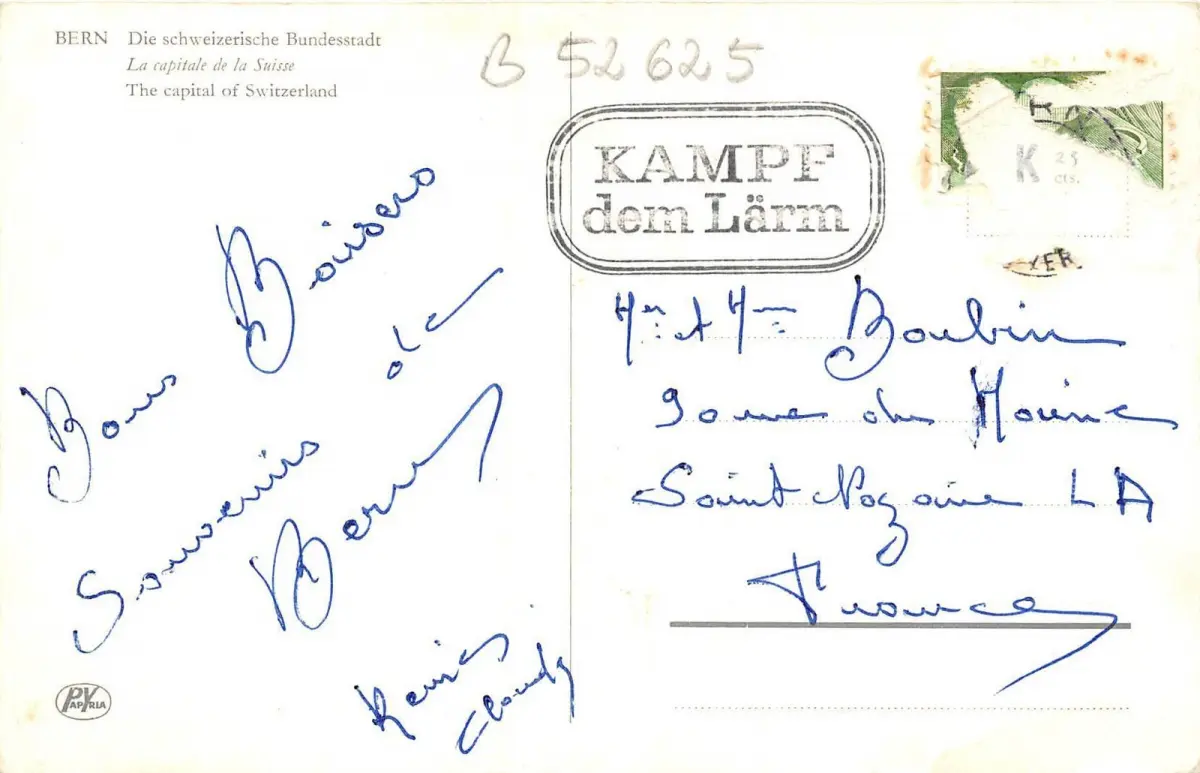 BERN Die schweizerische Bundesstadt
La capitale de la Suisse
The capital of Switzerland
B 52625
KAMPF
dem Lärm
K 25
cts.
Bons Baisers
Souvenirs de
Berne
Mr et Mme Boubin
rue du Maine
Saint Nazaire L A
France
PAPYRIA